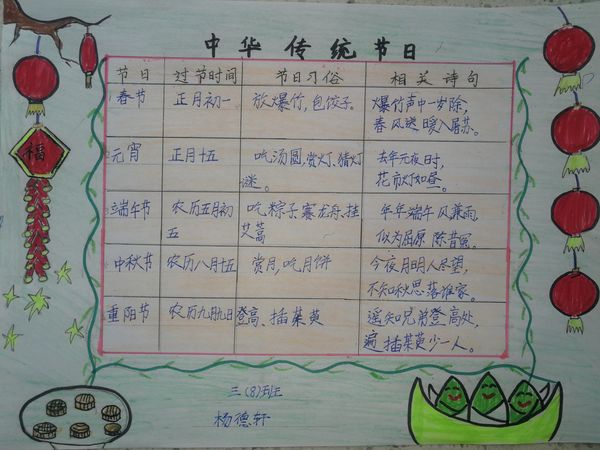 中华传统节日
节日 过节时间 节日习俗 相关诗句
春节 正月初一 放爆竹,包饺子。 爆竹声中一岁除,
春风送暖入屠苏。
元宵 正月十五 吃汤圆,赏灯,猜灯
谜。
去年元夜时,
花市灯如昼。
端午节 农历五月初
五
吃粽子,赛龙舟,挂
艾蒿
年年端午风兼雨,
似为屈原陈昔冤。
中秋节 农历八月十五 赏月,吃月饼 今夜月明人尽望,
不知秋思落谁家。
重阳节 农历九月九日 登高、插茱萸 遥知兄弟登高处,
遍插茱萸少一人。
福
三(8)班
杨德轩